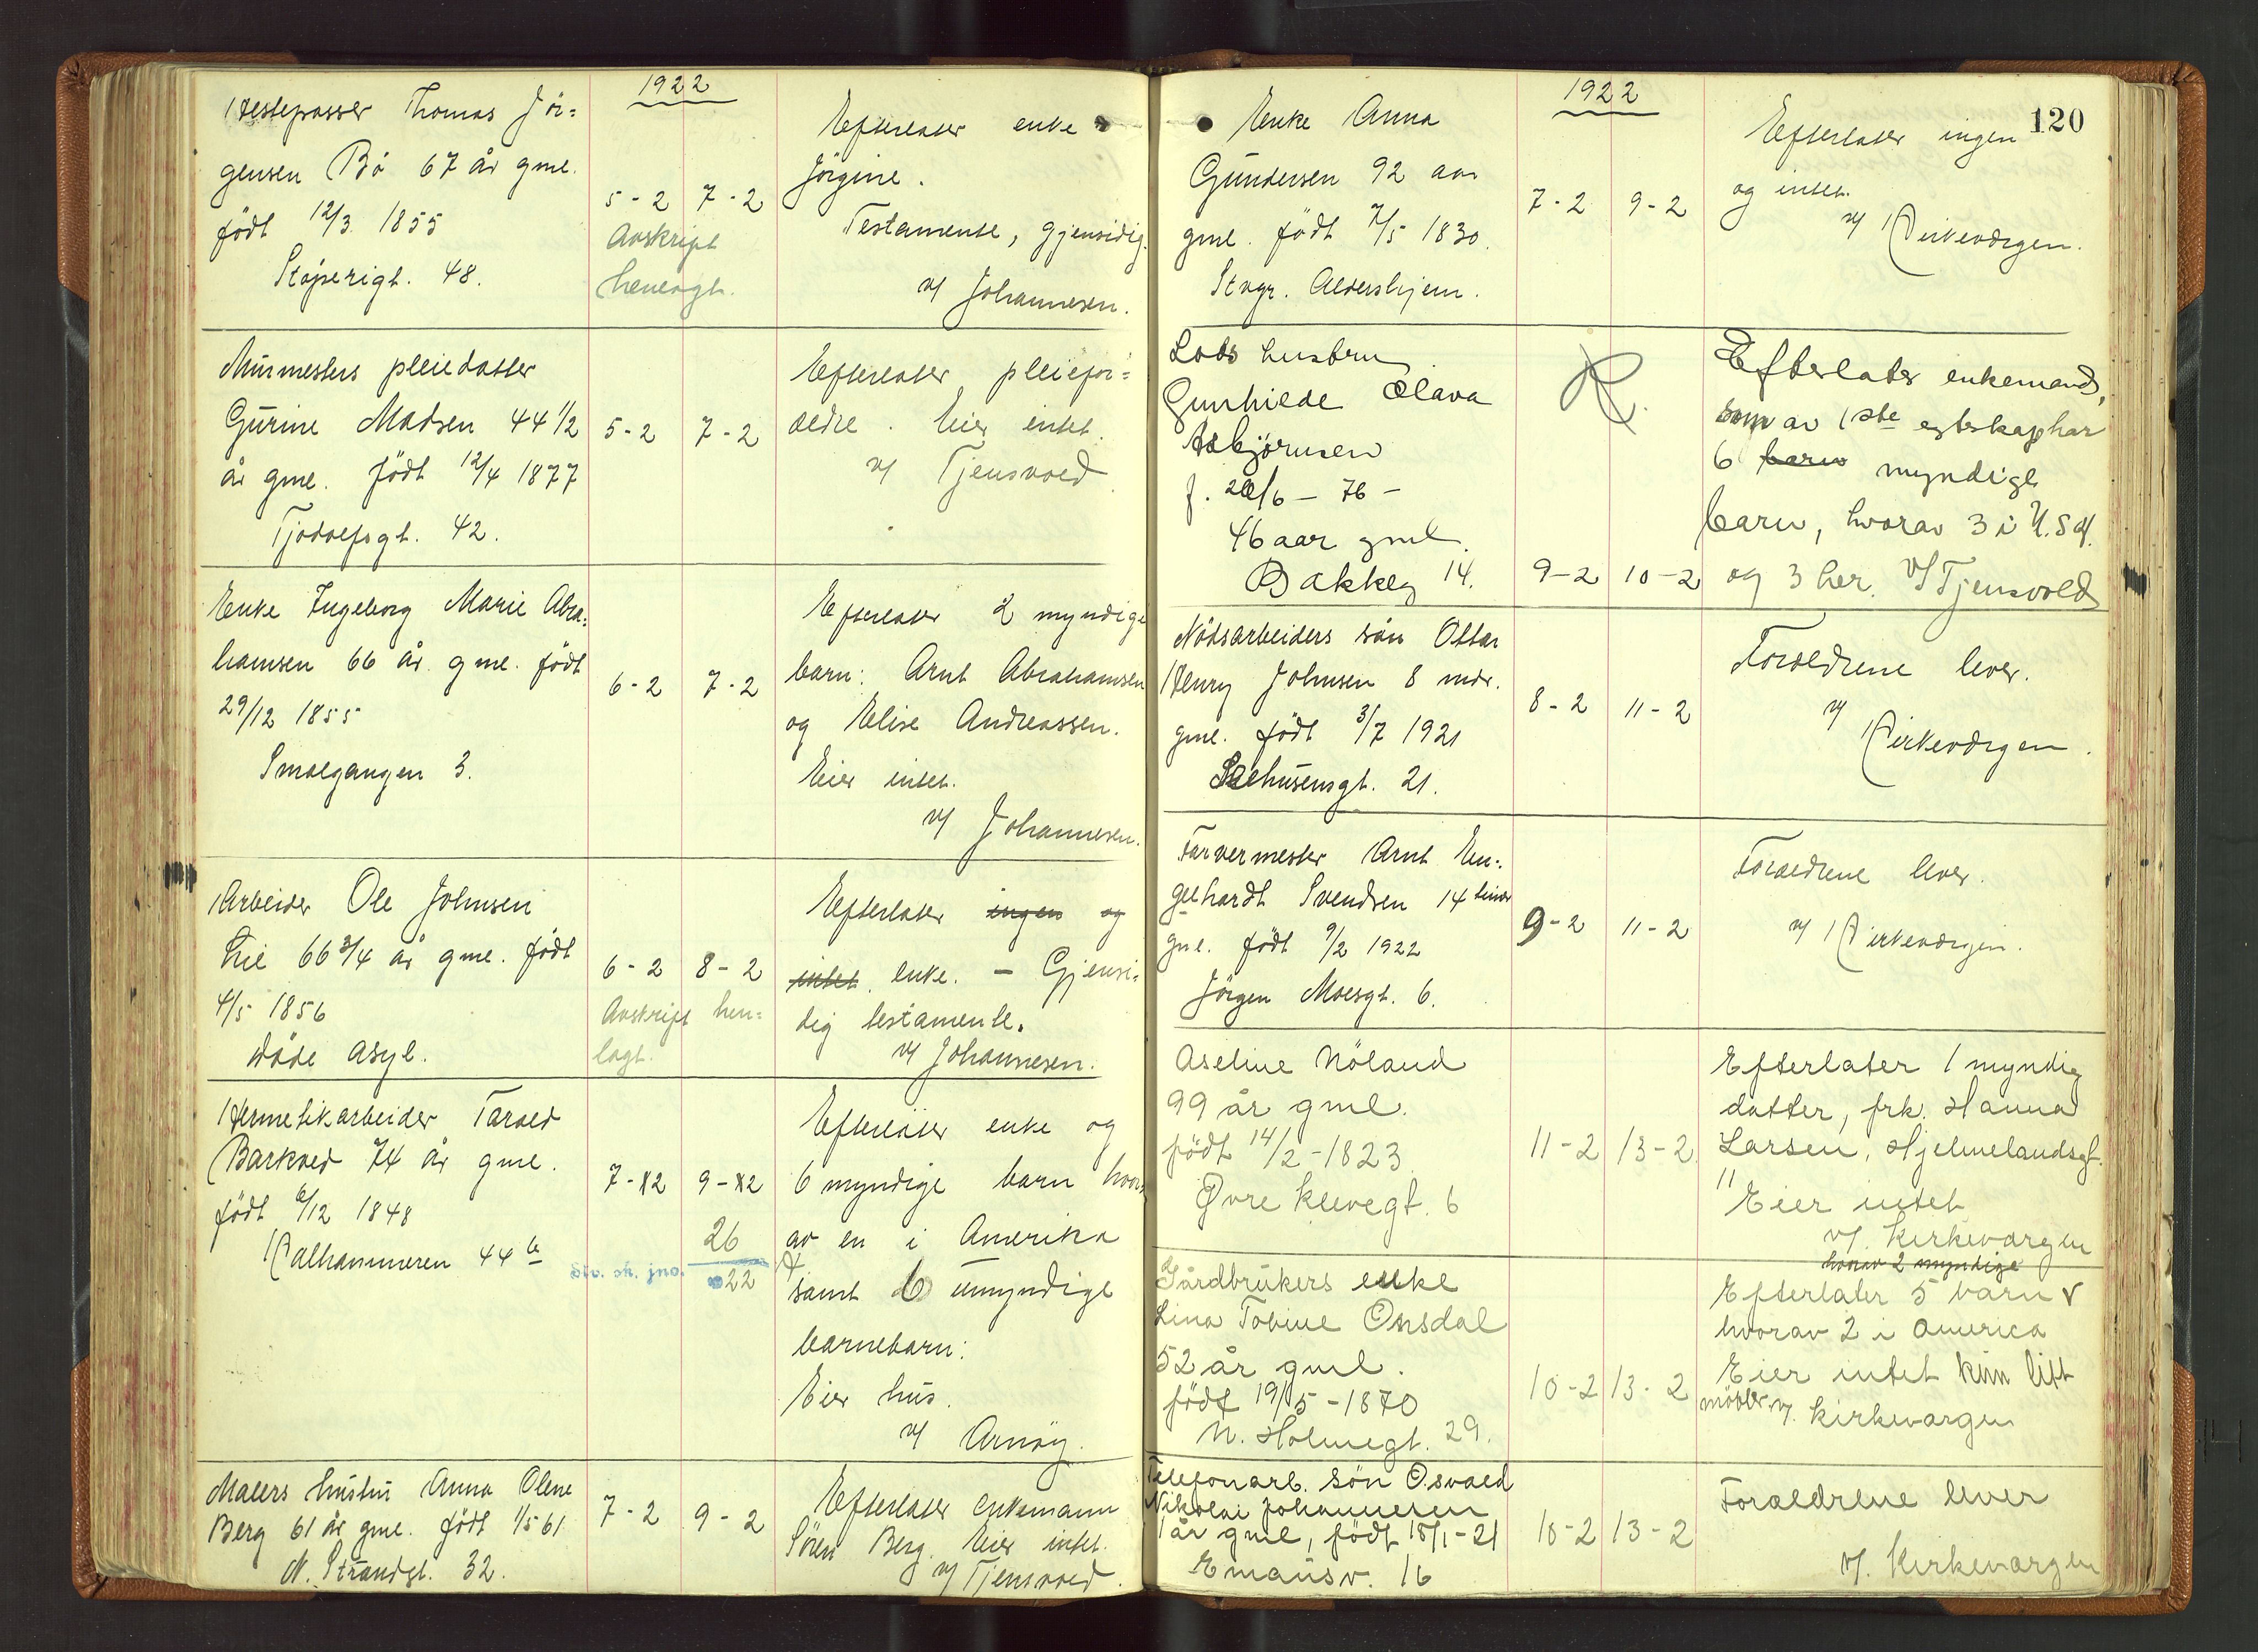 1922
Hestepasser Thomas Jör=
gensen Bö 67 år gml.
födt 12/3 1855
Støperigt. 48.
5-2 7-2
Avskrift
henlagt.
Efterlater enke
Jörgine.
Testamente, gjensidig.
v/ Johannesen.
Murmesters pleiedatter
Gurine Madsen 44 1/2
år gml. födt 12/4 1877
Tjodolfsgt. 42.
5-2 7-2
Efterlater pleiefor=
ældre. Eier intet.
v/ Tjensvold
Enke Ingeborg Marie Abra=
hamsen 66 år gml. födt
29/12 1855
Smalgangen 3.
6-2 7-2
Efterlater 2 myndige
barn: Arnt Abrahamsen
og Elise Andreassen.
Eier intet.
v/ Johannesen.
Arbeider Ole Johnsen
Lie 66 3/4 år gml. födt
4/5 1856
Våde asyl.
6-2 8-2
Avskrift hen=
lagt.
Efterlater ingen og
intet. enke. - Gjensi=
dig testamente.
v/ Johannesen.
Hermetikarbeider Tarald
Barkved 74 år gml.
födt 6/12 1848
Kalhammeren 44 b
7-2 9-2
26
Div. sk. jno. 22
Efterlater enke og
6 myndige barn hvor=
av en i Amerika
samt 6 umyndige
barnebarn.
Eier hus.
v/ Arnøy.
Malers hustru Anna Olene
Berg 61 år gml. födt 1/5 61
N. Strandgt. 32.
7-2 9-2
Efterlater enkemann
Sören Berg. Eier intet.
v/ Tjensvold.
1922
120
Enke Anna
Gundersen 92 aar
gml. födt 7/5 1830.
Stvgr. Aldershjem.
7-2 9-2
Efterlater ingen
og intet.
v/ Kirkeværgen.
Lods hustru
Gunhilde Olava
Asbjørnsen
f. 20/6 - 76 -
46 aar gml.
Bakkeg 14.
R.
9-2 10-2
Efterlater enkemand,
som av 1ste egteskap har
6 barn myndige
barn, hvorav 3 i U.S.A.
og 3 her. v/ Tjensvold
Nödsarbeiders sön Ottar
Henry Johnsen 8 mdr.
gml. födt 3/7 1921
Sehusensgt. 21.
8-2 11-2
Forældrene lever.
v/
Kirkeværgen.
Farvermester Arnt En=
gelhardt Svendsen 14 timer
gml. födt 9/2 1922
Jörgen Moesgt. 6.
9-2 11-2
Forældrene lever.
v/ Kirkeværgen.
Aseline Nöland
99 år gml.
födt 14/2-1823
Øvre Klevegt. 6
11-2 13-2
Efterlater 1 myndig
datter, frk. Hanna
Larsen, Hjelmelandsgt.
11
Eier intet
v/. Kirkevargen
Gårdbrukers enke
Lina Tobine Orsdal
52 år gml.
födt 19/5-1870
N. Holmegt. 29.
10-2 13-2
hvorav 2 myndige
Efterlater 5 barn
hvorav 2 i America
Eier intet kun litt
möbler. v/. Kirkevargen
Telefonarb. sön Osvald
Nikolai Johannesen
1 år gml, födt 18/1-21
Emausv. 16
10-2 13-2
Forældrene lever
v/. Kirkevargen